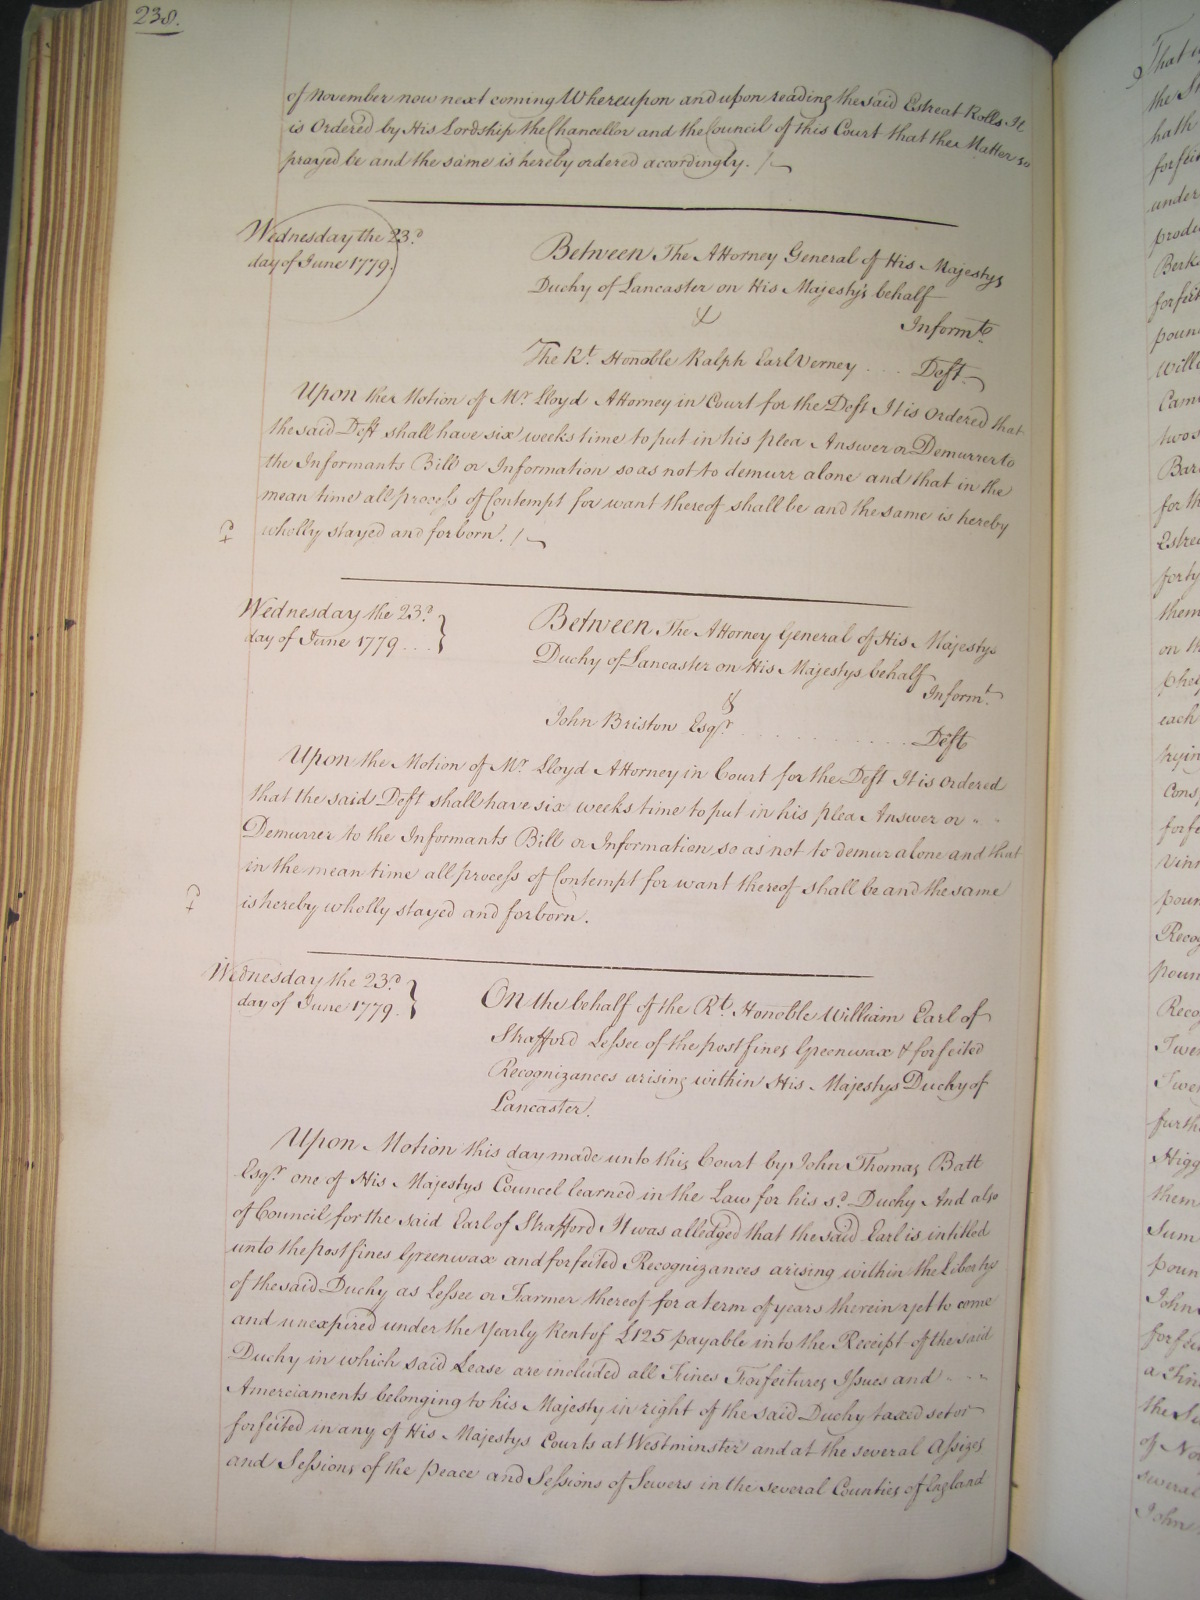 238.
of November now next coming Whereupon and upon reading the said Estreat Rolls It
is Ordered by His Lordship the Chancellor and the Council of this Court that the Matter so
prayed be and the same is hereby ordered accordingly.
Wednesday the 23.d
day of June 1779.
Between The Attorney General of His Majestys
Duchy of Lancaster on His Majesty's behalf
Informt.
&
The Rt. Honoble Ralph Earl Verney .... Deft.
Upon the Motion of Mr. Lloyd Attorney in Court for the Deft It is ordered that
the said Deft shall have six weeks time to put in his plea Answer or Demurrer to
the Informants Bill or Information so as not to demurr alone and that in the
mean time all process of Contempt for want thereof shall be and the same is hereby
wholly stayed and forborn.
Wednesday the 23.d
day of June 1779 ....
Between The Attorney General of His Majestys
Duchy of Lancaster on His Majestys behalf
Informt.
&
John Briston Esqr. ............ Deft
Upon the Motion of Mr. Lloyd Attorney in Court for the Deft It is ordered
that the said Deft shall have six weeks time to put in his plea Answer or
Demurrer to the Informants Bill or Information, so as not to demur alone and that
in the mean time all process of Contempt for want thereof shall be and the same
is hereby wholly stayed and forborn.
Wednesday the 23.d
day of June 1779.
On the behalf of the Rt. Honoble William Earl of
Strafford Lessee of the post fines Greenwax & forfeited
Recognizances arising within His Majestys Duchy of
Lancaster.
Upon Motion this day made unto this Court by John Thomas Batt
Esqr. one of His Majestys Councel learned in the Law for his s.d Duchy And also
of Council for the said Earl of Strafford It was alledged that the said Earl is intitled
unto the post fines Greenwax and forfeited Recognizances arising within the Liberty
of the said Duchy as Lessee or Farmer thereof for a term of years therein yet to come
and unexpired under the Yearly Rent of £125 payable into the Receipt of the said
Duchy in which said Lease are included all Fines Forfeitures Issues and
Amerciaments belonging to his Majesty in right of the said Duchy taxed set or
forfeited in any of His Majestys Courts at Westminster and at the several Assizes
and Sessions of the peace and Sessions of Sewers in the several Counties of England